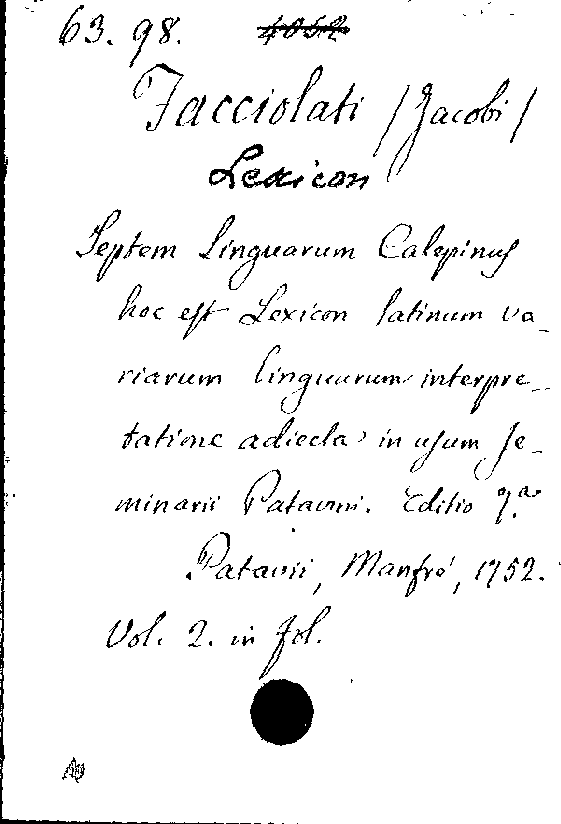 63. 98. 4052
Facciolati /Jacobi/
Lexicon
Septem Linguarum Calepinus
hoc est Lexicon latinum va-
riarum linguarum interpre-
tatione adiecta in usum Se-
minarii Patavini. Editio 7.a
Patavii, Manfré, 1752.
Vol. 2. in fol.